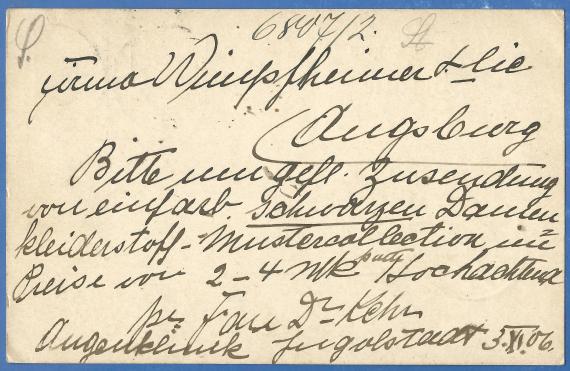 6807/2.
Firma Wimpfheimer & Cie
Augsburg
Bitte um gefl. Zusendung
von einfarb. schwarzen Damen
kleiderstoff-Mustercollection im
Preise von 2-4 Mk Hochachtend
pr Frau Dr Kehr
Augenklinik Ingolstadt 3.XI.06.